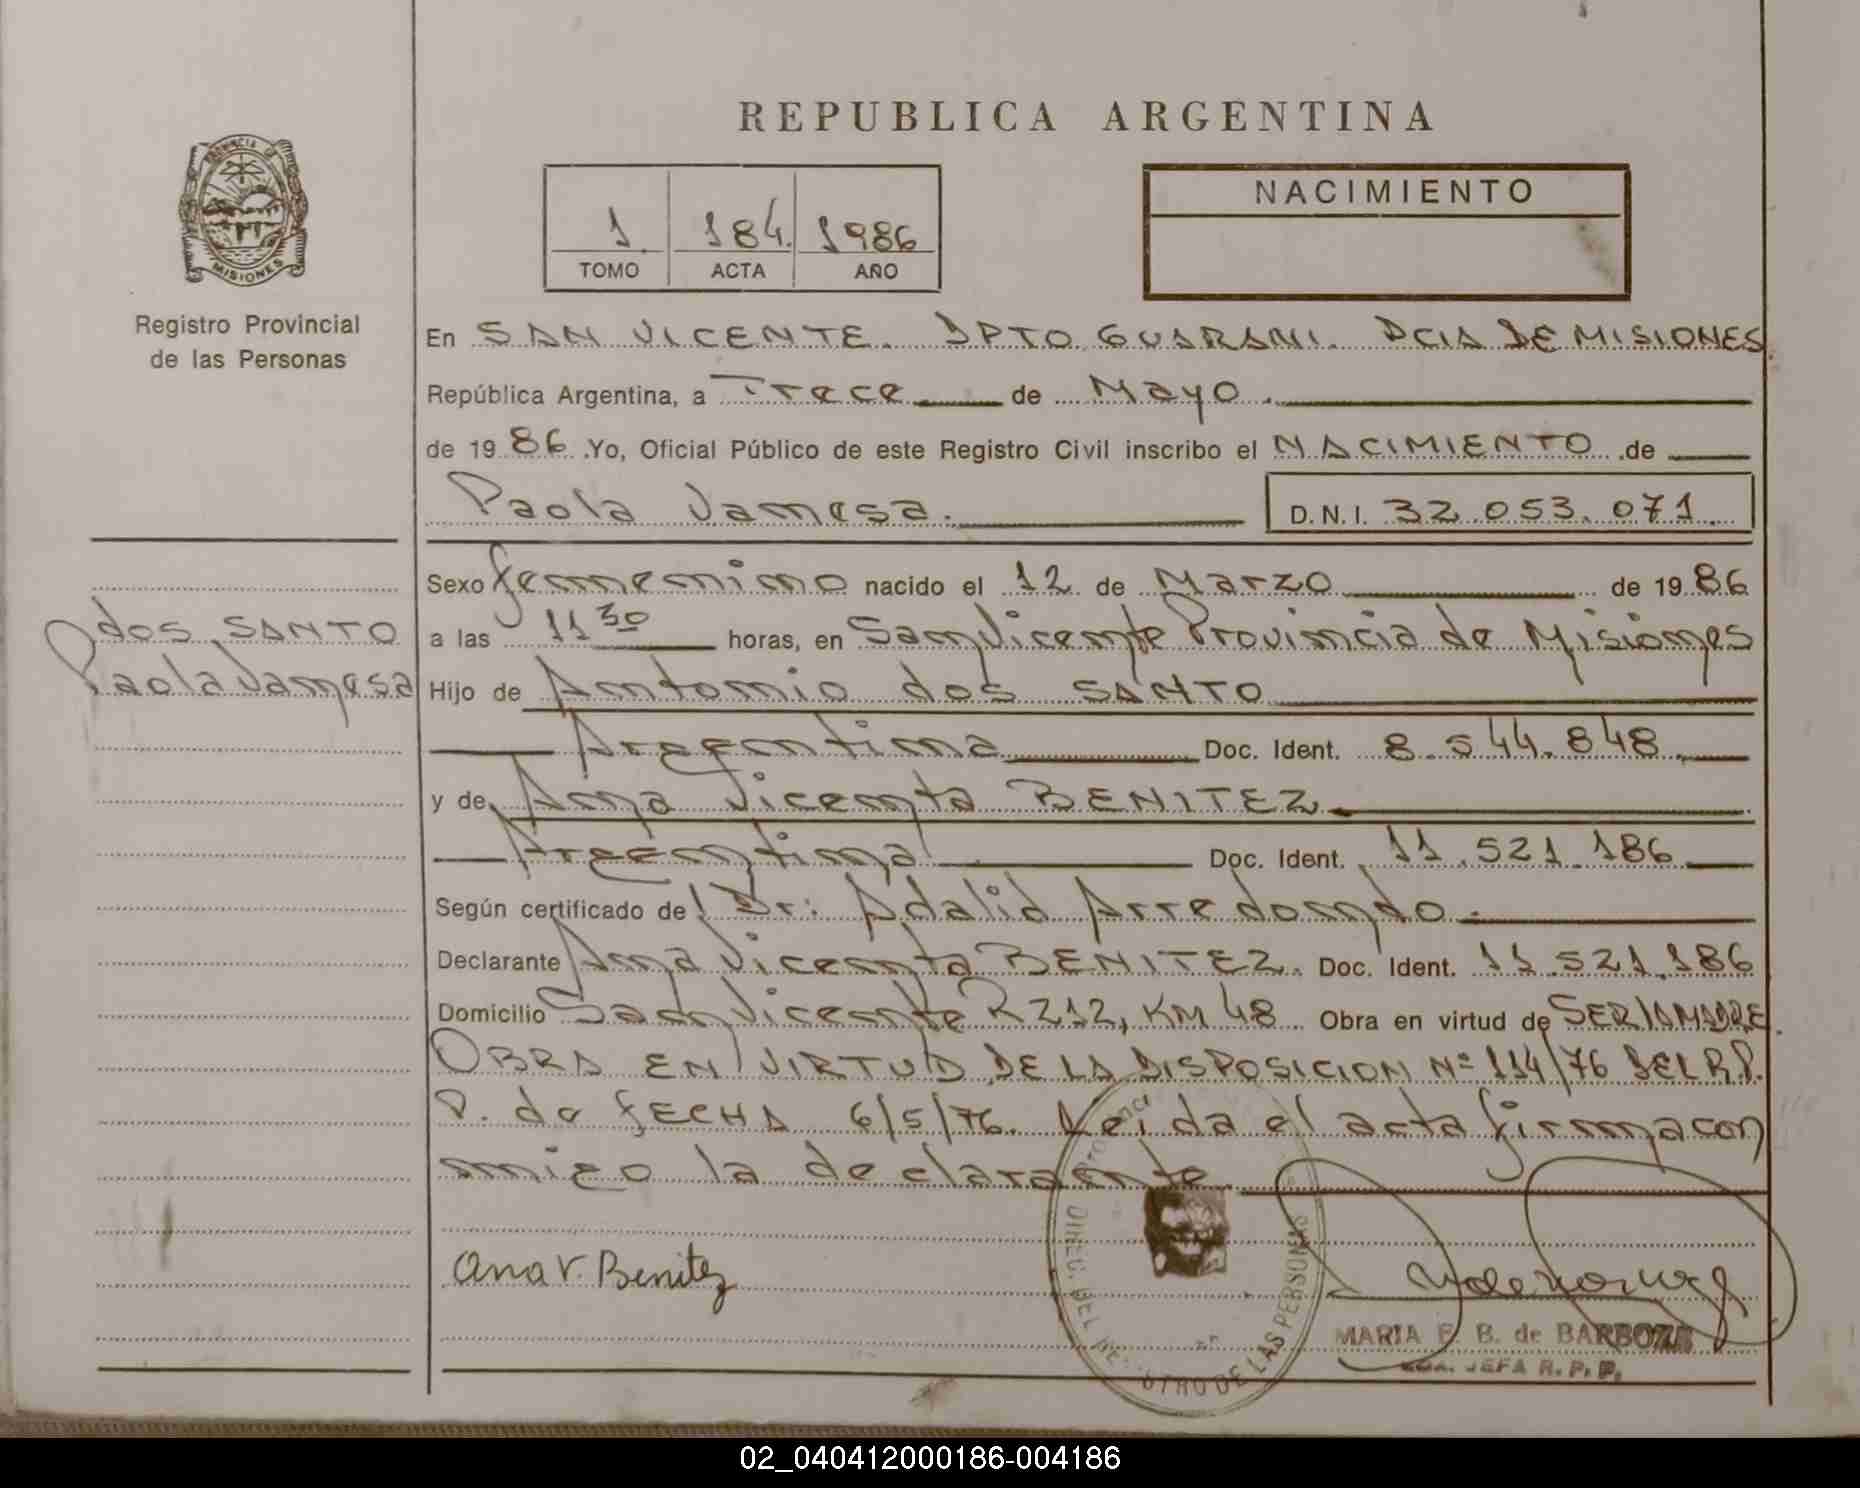 REPUBLICA ARGENTINA
PROVINCIA DE
MISIONES
Registro Provincial
de las Personas
1 184 1986
TOMO ACTA AÑO
NACIMIENTO
En SAN VICENTE. DPTO GUARANI. PCIA DE MISIONES.
República Argentina, a Trece de Mayo.
de 1986. Yo, Oficial Público de este Registro Civil inscribo el NACIMIENTO de
Paola Vanesa. D.N.I. 32.053.071.
Sexo femenino nacido el 12 de Marzo de 1986
a las 11 30 horas, en San Vicente Provincia de Misiones
dos SANTO
Paola Vanesa
Hijo de Antonio dos SANTO
Argentina Doc. Ident. 8.544.848.
y de Ana Vicenta BENITEZ
Argentina Doc. Ident. 11.521.186
Según certificado de Dr: Adalid Arredondo.
Declarante Ana Vicenta BENITEZ. Doc. Ident. 11.521.186
Domicilio San Vicente R 212, KM 48 Obra en virtud de SER LA MADRE.
OBRA EN VIRTUD DE LA DISPOSICION Nº 114/76 DEL R.P.
P. de FECHA 6/5/76. Leida el acta firma con
migo la declarante
Ana V. Benitez
DIREC. DEL REGISTRO DE LAS PERSONAS
MARIA E. B. de BARBOZA
JEFA R. P. P.
02_040412000186-004186